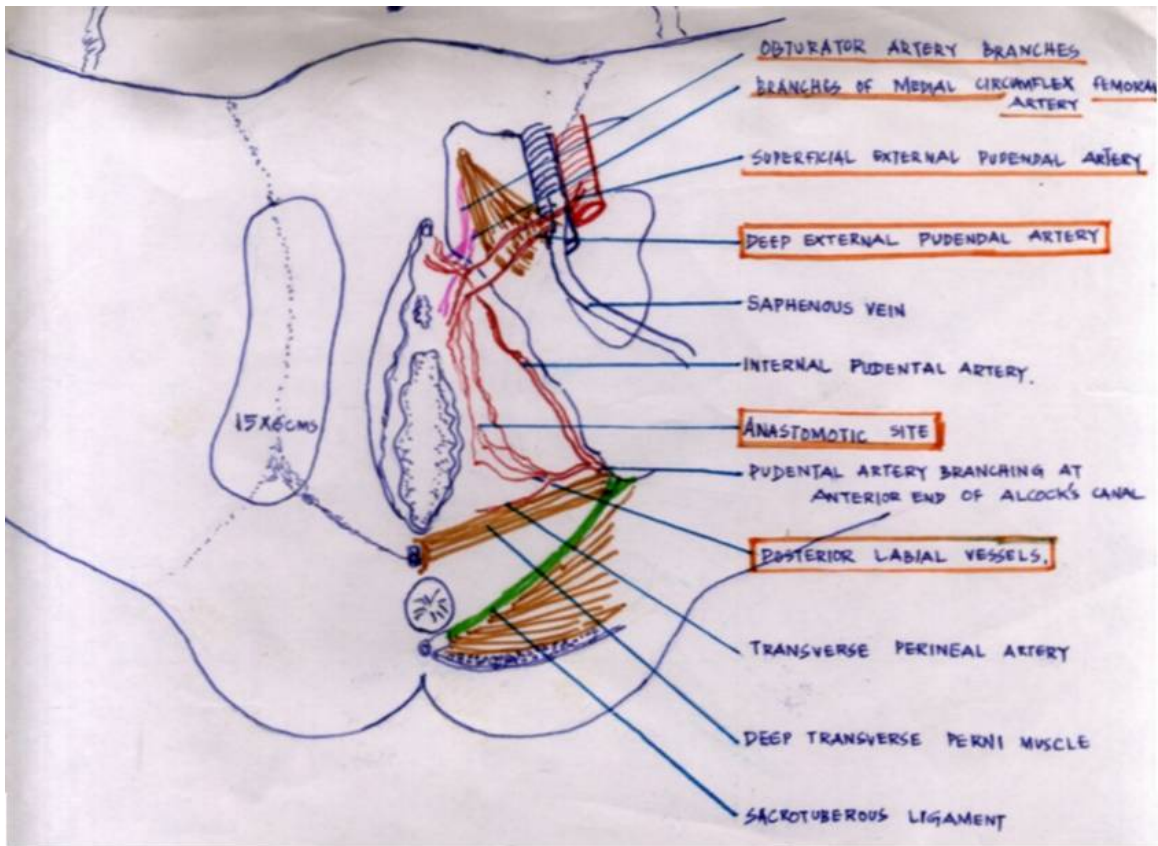 OBTURATOR ARTERY BRANCHES
BRANCHES OF MEDIAL CIRCUMFLEX FEMORAL
ARTERY
SUPERFICIAL EXTERNAL PUDENDAL ARTERY
DEEP EXTERNAL PUDENDAL ARTERY
SAPHENOUS VEIN
INTERNAL PUDENTAL ARTERY.
15X6CMS
ANASTOMOTIC SITE
PUDENTAL ARTERY BRANCHING AT
ANTERIOR END OF ALCOCK'S CANAL
POSTERIOR LABIAL VESSELS.
TRANSVERSE PERINEAL ARTERY
DEEP TRANSVERSE PERNI MUSCLE
SACROTUBEROUS LIGAMENT